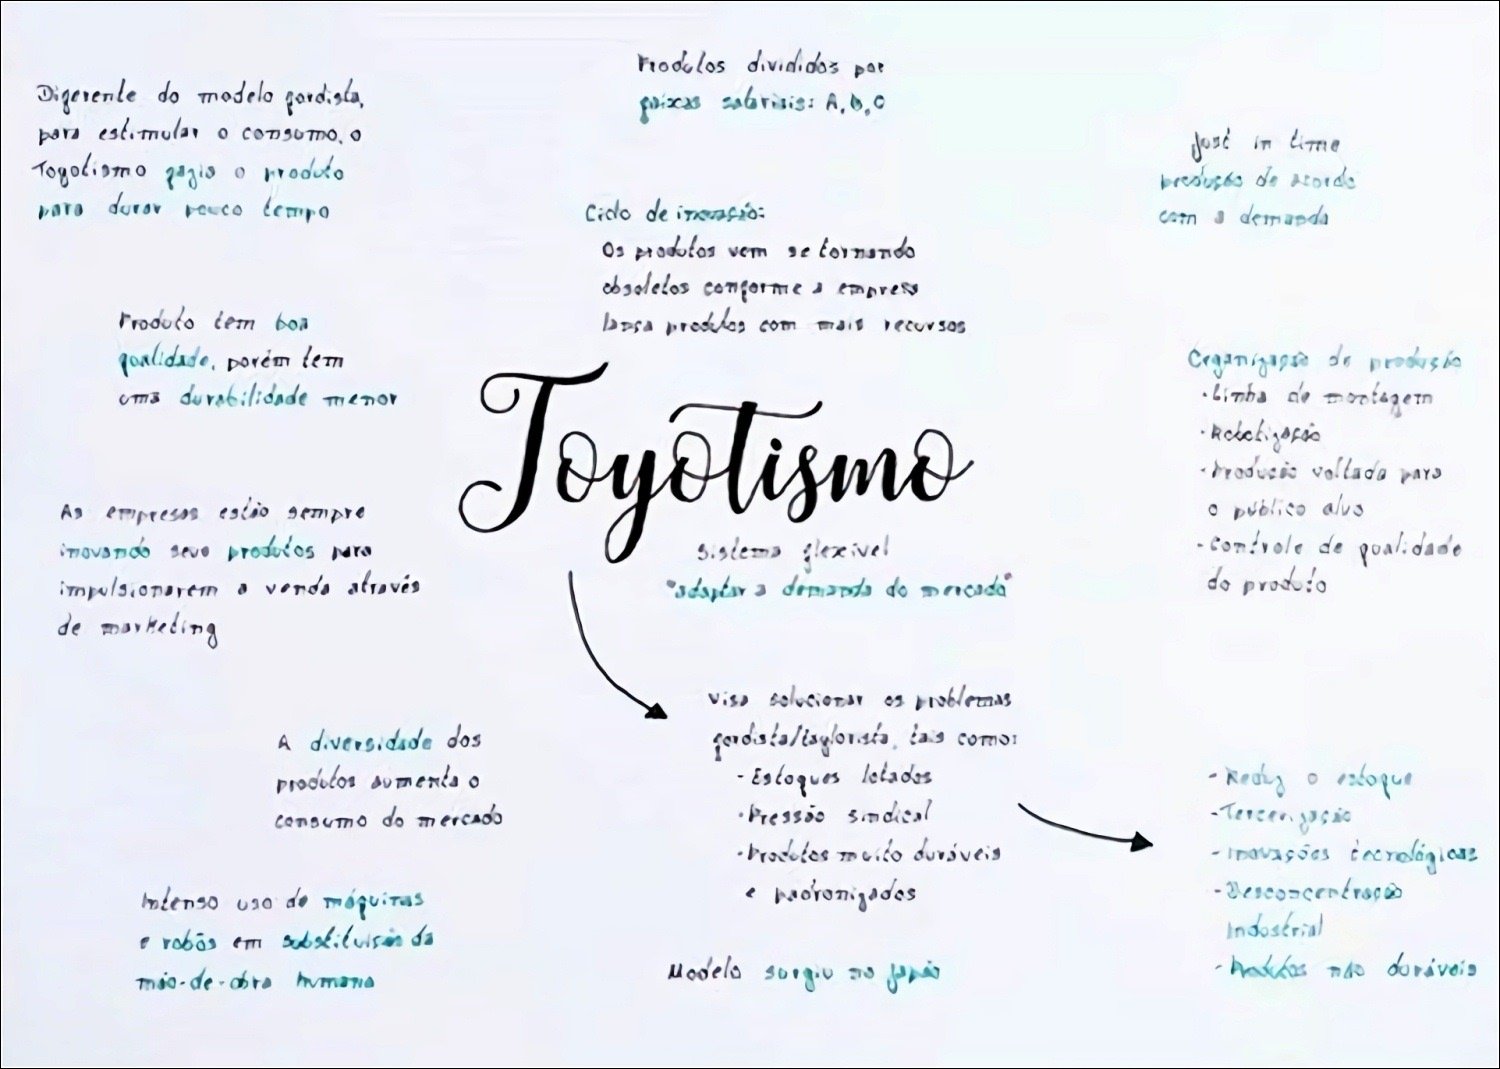 Diferente do modelo fordista,
para estimular o consumo, o
Toyotismo fazia o produto
para durar pouco tempo
Produto tem boa
qualidade, porém tem
uma durabilidade menor
As empresas estão sempre
inovando seus produtos para
impulsionarem a venda através
de marketing
A diversidade dos
produtos aumenta o
consumo do mercado
Intenso uso de máquinas
e robôs em substituição da
mão-de-obra humana
Produtos divididos por
faixas salariais: A, B, C
Ciclo de inovação:
Os produtos vem se tornando
obsoletos conforme a empresa
lança produtos com mais recursos
Toyotismo
Sistema flexível
"adaptar a demanda do mercado"
Visa solucionar os problemas
fordista/taylorista, tais como:
- Estoques lotados
- Pressão sindical
- Produtos muito duráveis
e padronizados
Modelo surgiu no Japão
Just in time
produção de acordo
com a demanda
Organização de produção
- Linha de montagem
- Robotização
- Produção voltada para
o público alvo
- Controle de qualidade
do produto
- Reduz o estoque
- Terceirização
- Inovações tecnológicas
- Desconcentração
Industrial
- Produtos não duráveis